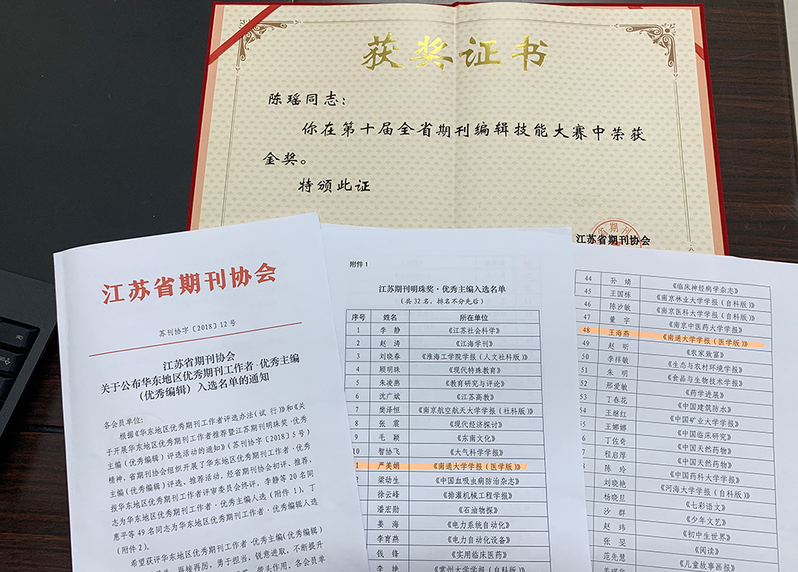 获奖证书
陈瑶同志：
你在第十届全省期刊编辑技能大赛中荣获
金奖。
特颁此证
江苏省期刊协会
江苏省期刊协会
苏刊协字〔2018〕12号
江苏省期刊协会
关于公布华东地区优秀期刊工作者·优秀主编
（优秀编辑）入选名单的通知
各会员单位：
根据《华东地区优秀期刊工作者评选办法（试行）》和《关
于开展华东地区优秀期刊工作者推荐暨江苏期刊明珠奖·优秀
主编（优秀编辑）评选活动的通知》（苏刊协字〔2018〕5号）
精神，省期刊协会组织开展了华东地区优秀期刊工作者·优秀
主编（优秀编辑）评选、推荐活动，经省期刊协会初评、推荐，
报华东地区优秀期刊工作者评审委员会终评，李静等20名同
志为华东地区优秀期刊工作者·优秀主编人选（附件1），丁
惠平等49名同志为华东地区优秀期刊工作者·优秀编辑人选
（附件2）。
希望获评华东地区优秀期刊工作者·优秀主编（优秀编辑）
附件1
江苏期刊明珠奖·优秀主编入选名单
（共32名，排名不分先后）
序号 姓名 所在单位
1 李静 《江苏社会科学》
2 赵涛 《江海学刊》
3 刘晓春 《淮海工学院学报（人文社科版）》
4 顾明珠 《现代特殊教育》
5 朱凌燕 《教育研究与评论》
6 沈广斌 《江苏高教》
7 樊泽恒 《南京航空航天大学学报（社科版）》
8 张震 《现代经济探讨》
9 毛颖 《东南文化》
10 智协飞 《大气科学学报》
严美娟 《南通大学学报（医学版）》
梁幼生 《中国血吸虫病防治杂志》
徐云峰 《排灌机械工程学报》
潘宏勋 《石油物探》
姜海 《电力系统自动化》
李育燕 《电力自动化设备》
钱锋 《实用临床医药》
《常州大学学报（社科版）》
44 孙婧 《临床神经病学杂志》
45 王国栋 《南京林业大学学报（自科版）》
46 陈沙敏 《南京医科大学学报（自科版）》
47 董宇 《南京中医药大学学报》
48 王海燕 《南通大学学报（医学版）》
49 赵明 《农家致富》
50 李祥敏 《生态与农村环境学报》
51 朱明 《食品与生物技术学报》
52 那爱敏 《药学进展》
53 丁春花 《中国建筑防水》
54 王继红 《中国矿业大学学报》
55 王娜娜 《中国临床研究》
56 丁佐奇 《中国天然药物》
57 程启厚 《中国天然药物》
58 陈玲 《中国药科大学学报》
刘晓艳 《河海大学学报（自科版）》
杨晓旦 《七彩语文》
沙群 《少年文艺》
赵玮 《初中生世界》
张昊 《阅读》
范先慧 《儿童故事画报》